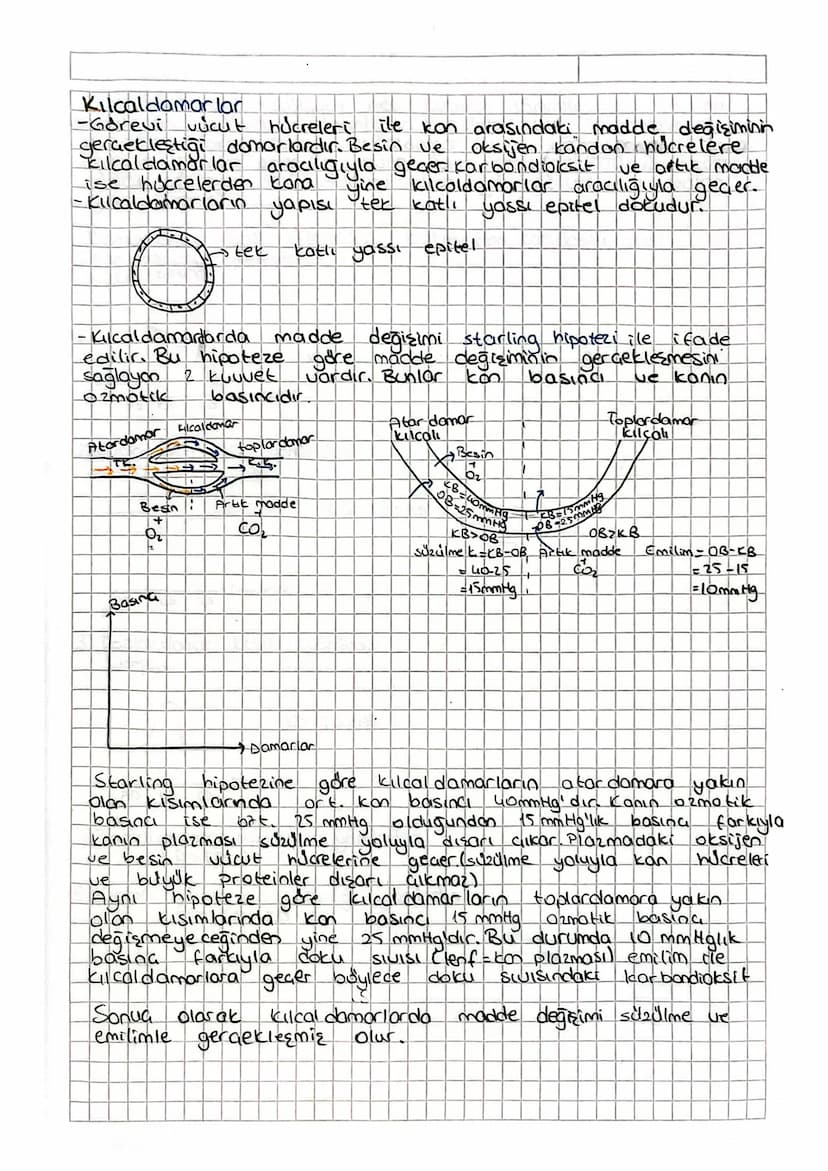 Kılcaldamarlar
-Görevi vücut hücreleri ile kan arasındaki madde değişiminin
gerçekleştiği damarlardır. Besin ve oksijen kandan hücrelere
kılcaldamarlar aracılığıyla geçer. Karbondioksit ve artık madde
ise hücrelerden kana yine kılcaldamarlar aracılığıyla geçer.
-Kılcaldamarların yapısı tek katlı yassı epitel dokudur.
tek katlı yassı epitel
-Kılcaldamarlarda madde değişimi starling hipotezi ile ifade
edilir. Bu hipoteze göre madde değişiminin gerçekleşmesini
sağlayan 2 kuvvet vardır. Bunlar kan basıncı ve kanın
ozmotik basıncıdır.
Atardamar
kılcaldamar
toplardamar
T.K.
K.K.
Besin
+
O₂
Artık madde
CO₂
Atar damar
kılcalı
Toplardamar
kılcalı
Besin
+
O₂
KB=40mmHg
OB=25mmHg
KB=15mmHg
OB=25mmHg
KB>OB
OB>KB
süzülme k=KB-OB
= 40-25
=15mmHg
Artık madde
+
CO₂
Emilim= OB-KB
= 25-15
=10mmHg
Basınç
Damarlar
Starling hipotezine göre kılcaldamarların atardamara yakın
olan kısımlarında ort. kan basıncı 40mmHg'dır. Kanın ozmotik
basıncı ise ort. 25 mmHg olduğundan 15 mmHg'lık basınç farkıyla
kanın plazması süzülme yoluyla dışarı çıkar. Plazmadaki oksijen
ve besin vücut hücrelerine geçer.(süzülme yoluyla kan hücreleri
ve büyük proteinler dışarı çıkmaz)
Aynı hipoteze göre kılcaldamarların toplardamara yakın
olan kısımlarında kan basıncı 15 mmHg ozmotik basınç
değişmeyeceğinden yine 25 mmHg'dır. Bu durumda 10 mmHglık
basınç farkıyla doku sıvısı (lenf=kan plazması) emilim ile
kılcaldamarlara geçer böylece doku sıvısındaki karbondioksit
Sonuç olarak kılcaldamarlarda madde değişimi süzülme ve
emilimle gerçekleşmiş olur.